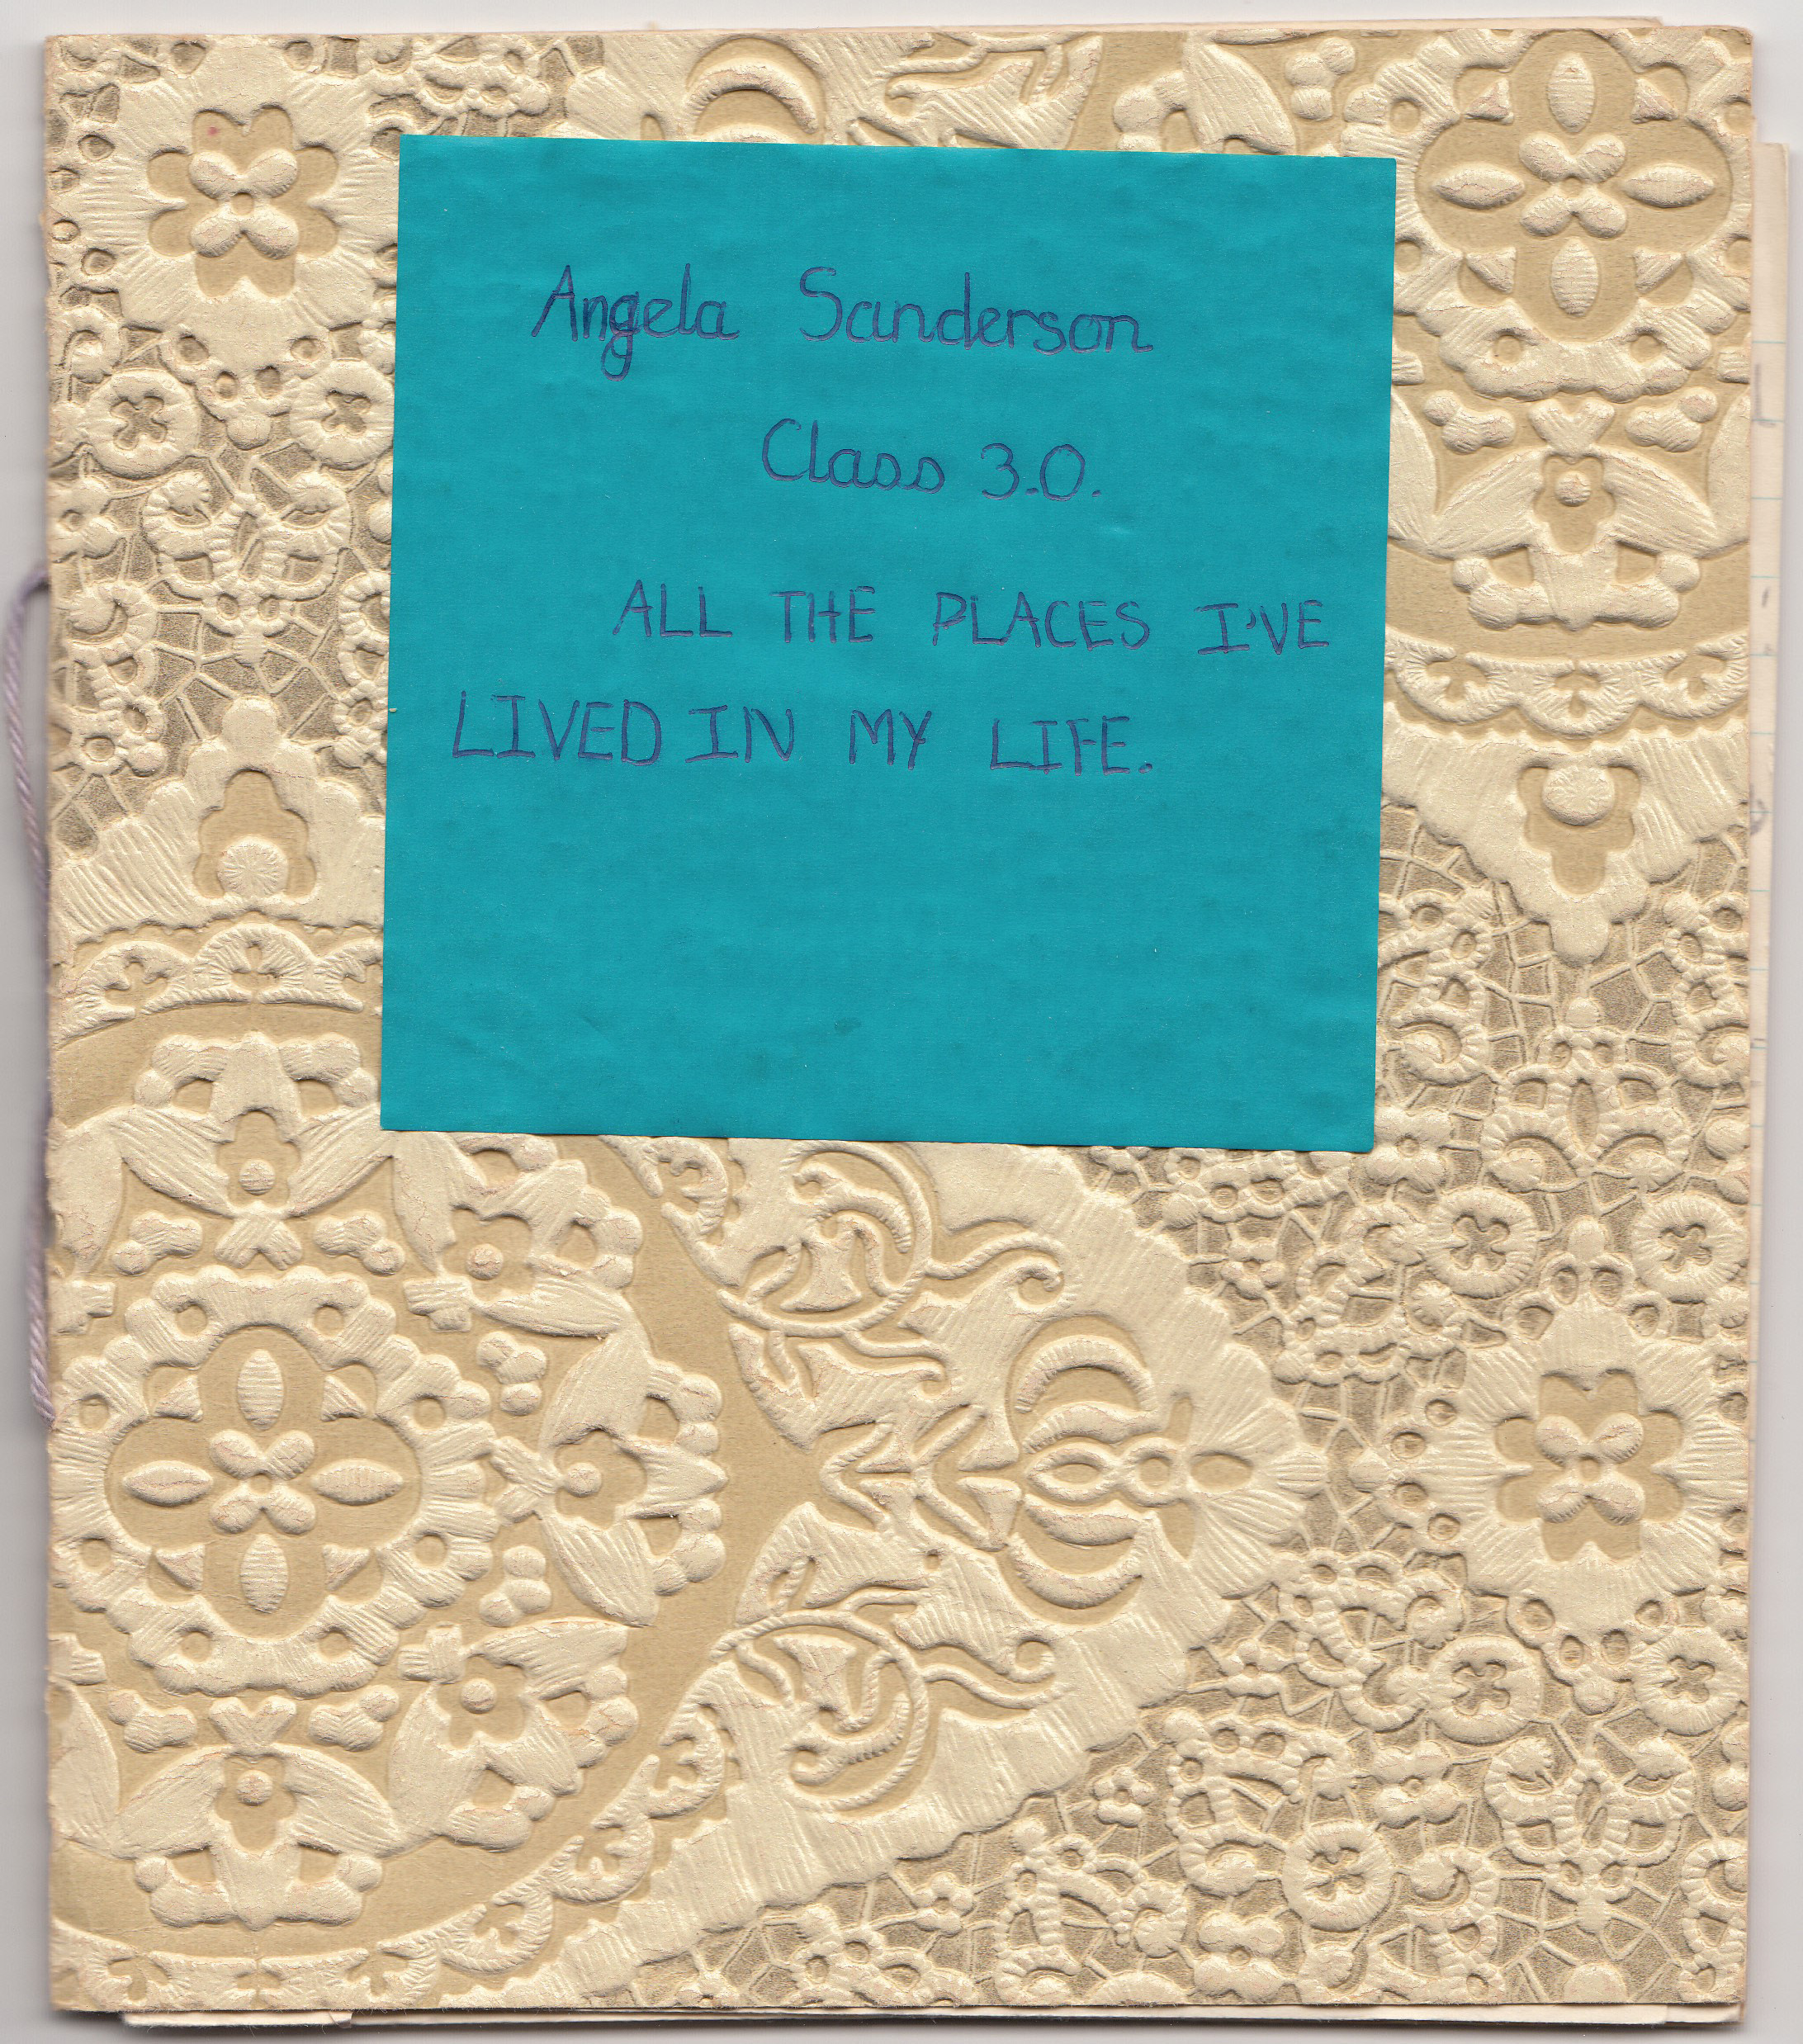 Angela Sanderson
Class 3.O.
ALL THE PLACES I'VE
LIVED IN MY LIFE.